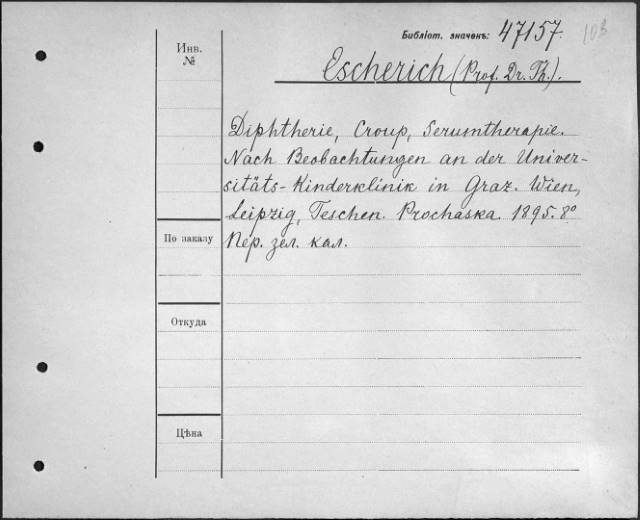 Библіот. значекъ: 47157.
103
Инв.
№
Escherich (Prof. Dr. Th.).
Diphtherie, Croup, Serumtherapie.
Nach Beobachtungen an der Univer-
sitäts-Kinderklinik in Graz. Wien,
Leipzig, Teschen. Prochaska. 1895. 8º
По заказу
Пер. зел. кал.
Откуда
Цѣна